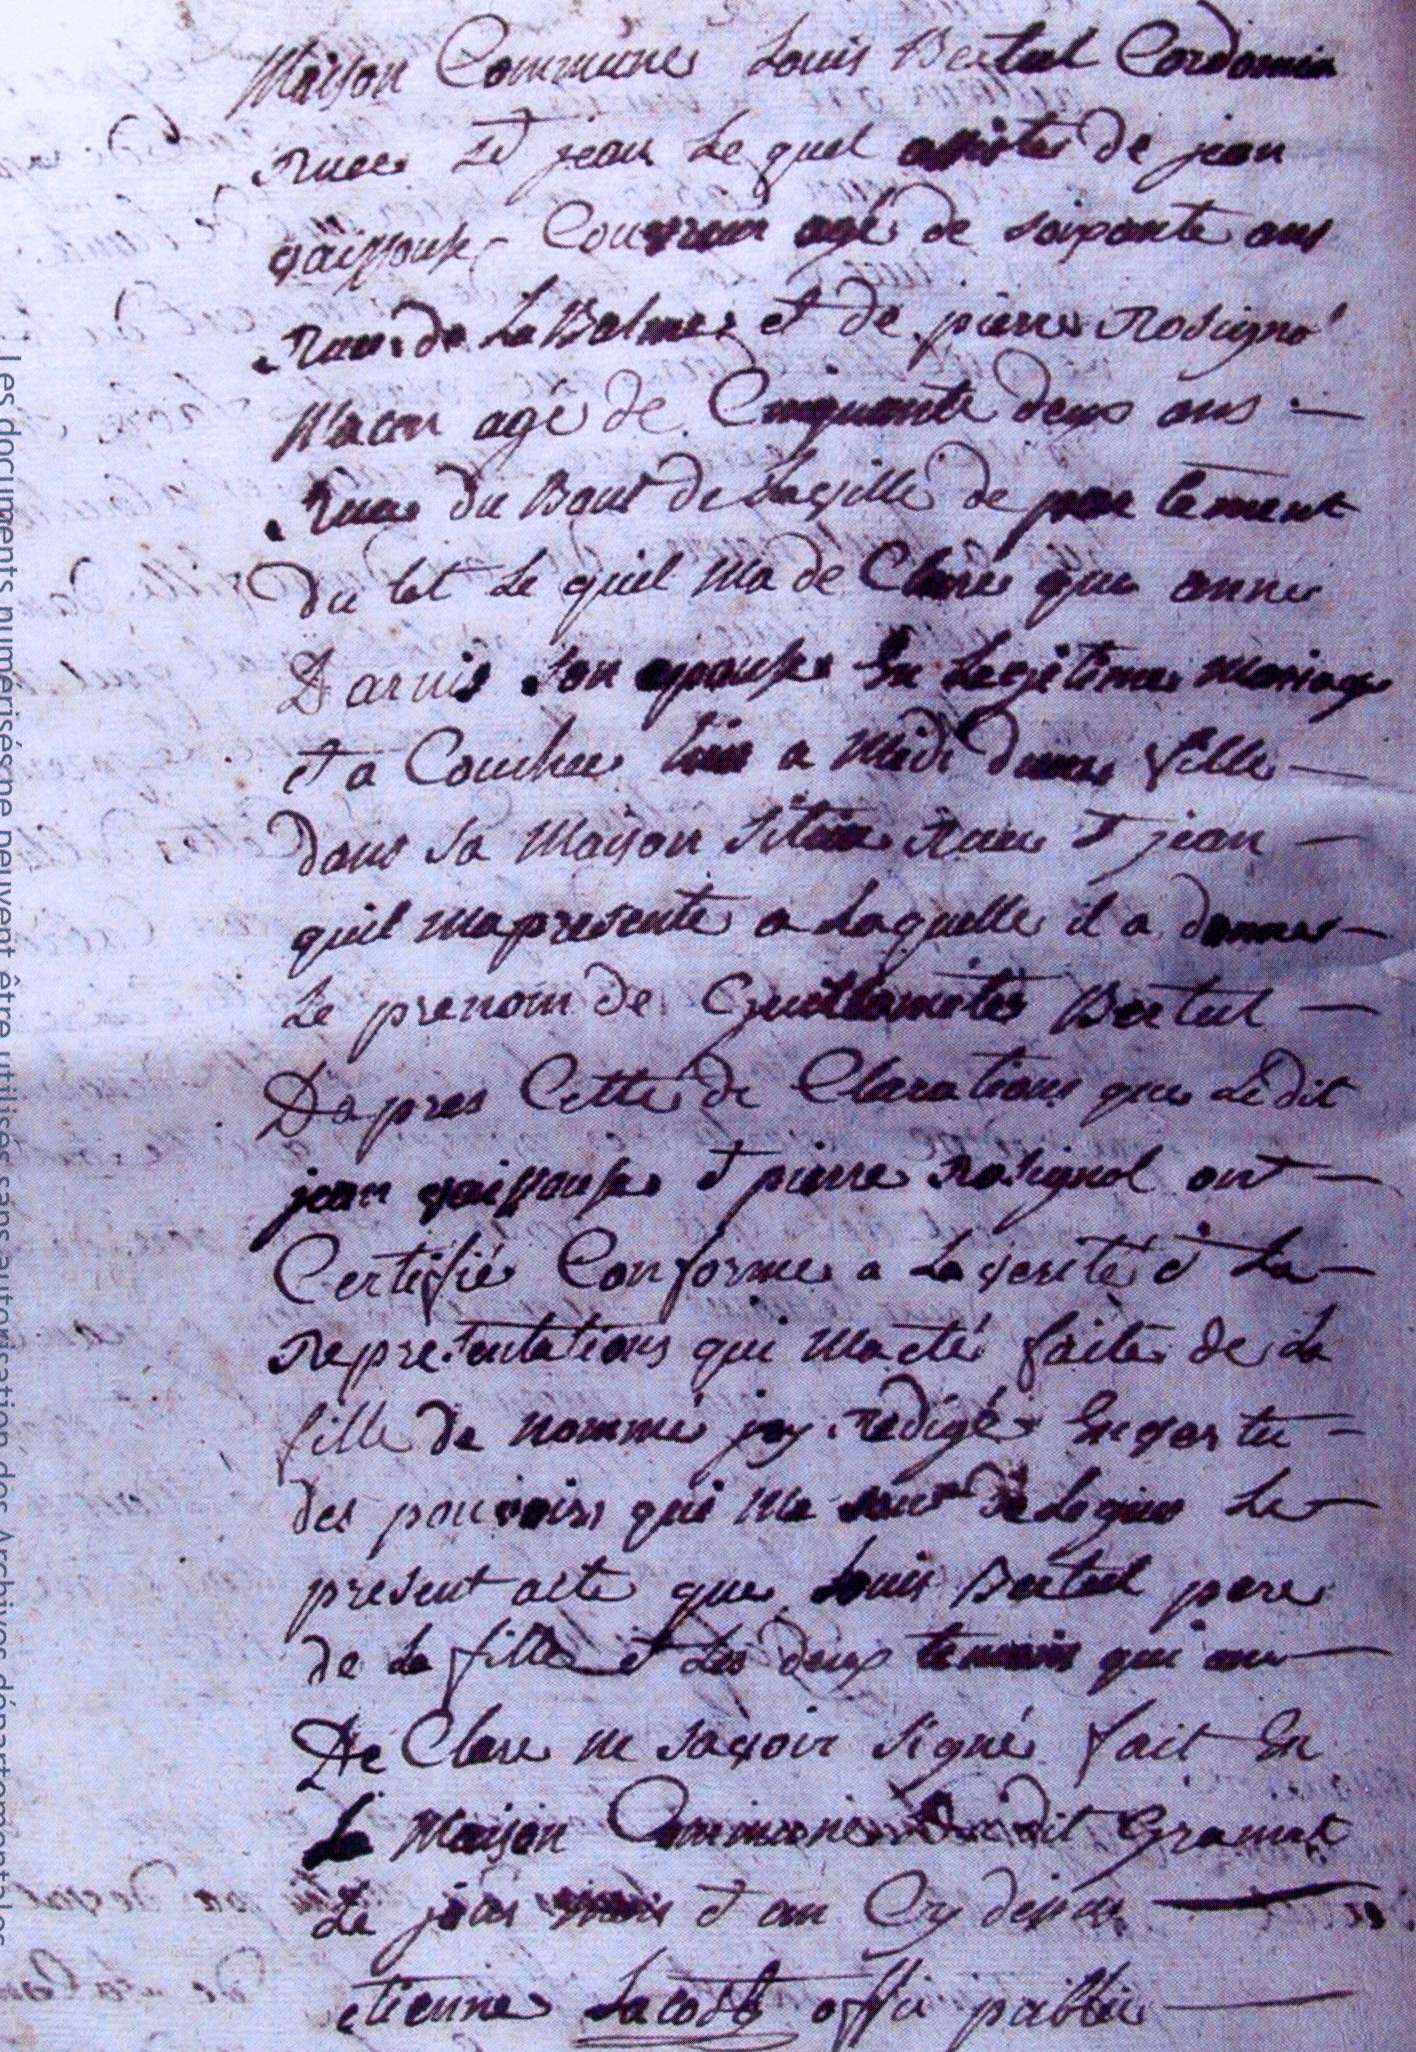 Maison Commune Louis Bertul Cordonier
Rue St jean Le quel assisté de jean
vaissouse Couvreur agé de soixante ans
Rue de La Balme et de pierre Rosigno
Macon agé de Cinquante deux ans —
Rue du Bout de Laville de partement
du lot Le quel ma de Claré que anne
Darnis son epouse En Legitime Mariage
et a Couchee hier a Midi dune fille —
dans sa Maison Située Rue St jean —
quil ma presenté a Laquelle il a donné —
Le prenom de Guillamete Bertul —
Dapres Cette de Claration que Ledit
jean vaissouse et pierre Rosignol ont —
Certifié Conforme a La verité et La —
Representations qui ma eté faite de La
fille de nommé jay redigé En vertu —
des pouvoirs qui me sont de Legues Le —
present acte que Louis Bertul pere
de La fille et Les deux temoins qui ont —
De Clare ne savoir signé fait En
La Maison Commune dudit Gramat
Le jour mois et an Cy dessus —
etienne Lacoste offi public —
Les documents numérisés ne peuvent être utilisés sans autorisation des Archives départementales